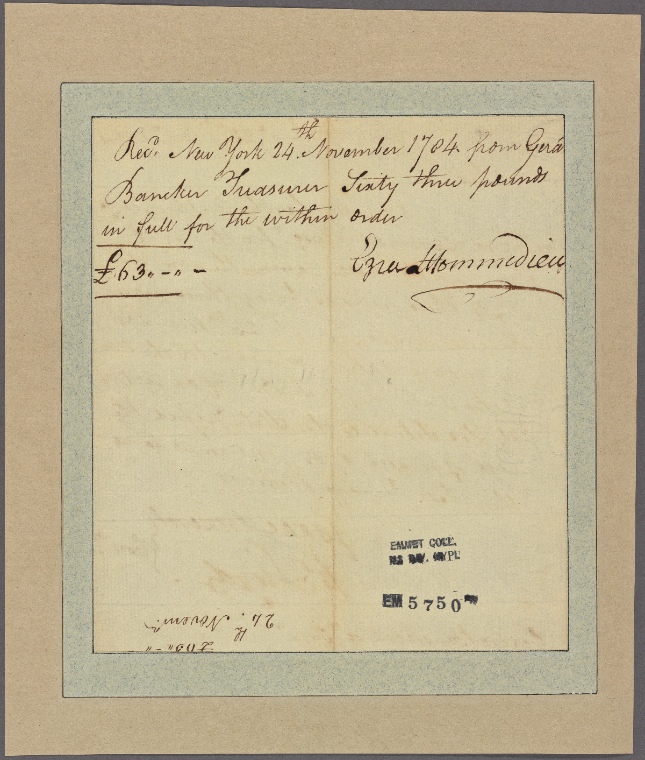 Recd. New York 24th. November 1784 from Gerd
Bancker Treasurer Sixty three pounds
in full for the within order
£63 „ - „ -
Ezra L'Hommedieu
EMMET COLL.
MS DIV. NYPL
EM 5750
24th. Novemr.
£63 „ - „